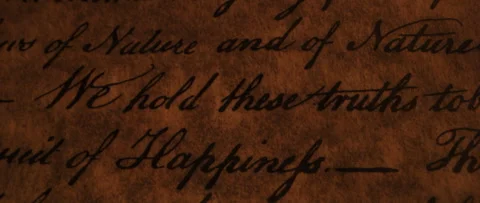 of Nature and of Nature
— We hold these truths to b
suit of Happineſs.— Th